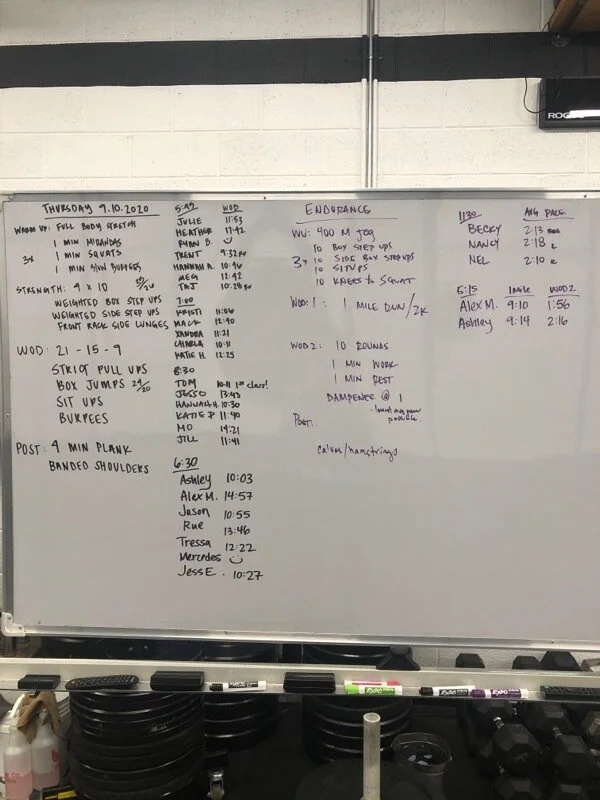 THURSDAY 9.10.2020
WARM UP: FULL BODY STRETCH
1 MIN MIRANDAS
3x 1 MIN SQUATS
1 MIN SLOW BURPEES
STRENGTH: 4 x 10
WEIGHTED BOX STEP UPS
WEIGHTED SIDE STEP UPS
FRONT RACK SIDE LUNGES
WOD: 21 - 15 - 9
STRICT PULL UPS
BOX JUMPS 24/20
SIT UPS
BURPEES
POST: 4 MIN PLANK
BANDED SHOULDERS
WOD
JULIE 11:53
HEATHER 12:42
RYAN B.
TRENT 9:32 RX
HANNAH A. 10:46
MEG 12:42
TAJ 10:28 RX
7:00
KRISTI 11:06
MACK 12:40
XANDRA 11:21
CHARLA 10:11
KATIE H. 12:25
8:30
TOM 1st class!
13:43
HANNAH H. 10:30
KATIE P 11:40
MO 14:21
JILL 11:41
6:30
Ashley 10:03
Alex M. 14:57
Jason 10:55
Rue 13:46
Tressa 12:22
Mercedes
Jess E. 10:27
ENDURANCE
WU: 400 M JOG
10 BOX STEP UPS
3x 10 SIDE BOX STEP UPS
10 SITUPS
10 KNEES TO SQUAT
WOD 1: 1 MILE RUN/2K
WOD 2: 10 ROUNDS
1 MIN WORK
1 MIN REST
DAMPENER @ 1
POST:
calves/hamstrings
1130 AVG PACE
BECKY 2:13
NANCY 2:18
NEL 2:10
5:15 1 MILE WOD 2
Alex M. 9:10 1:56
Ashley 9:14 2:16
ROG
EXPO
EXPO
EXPO